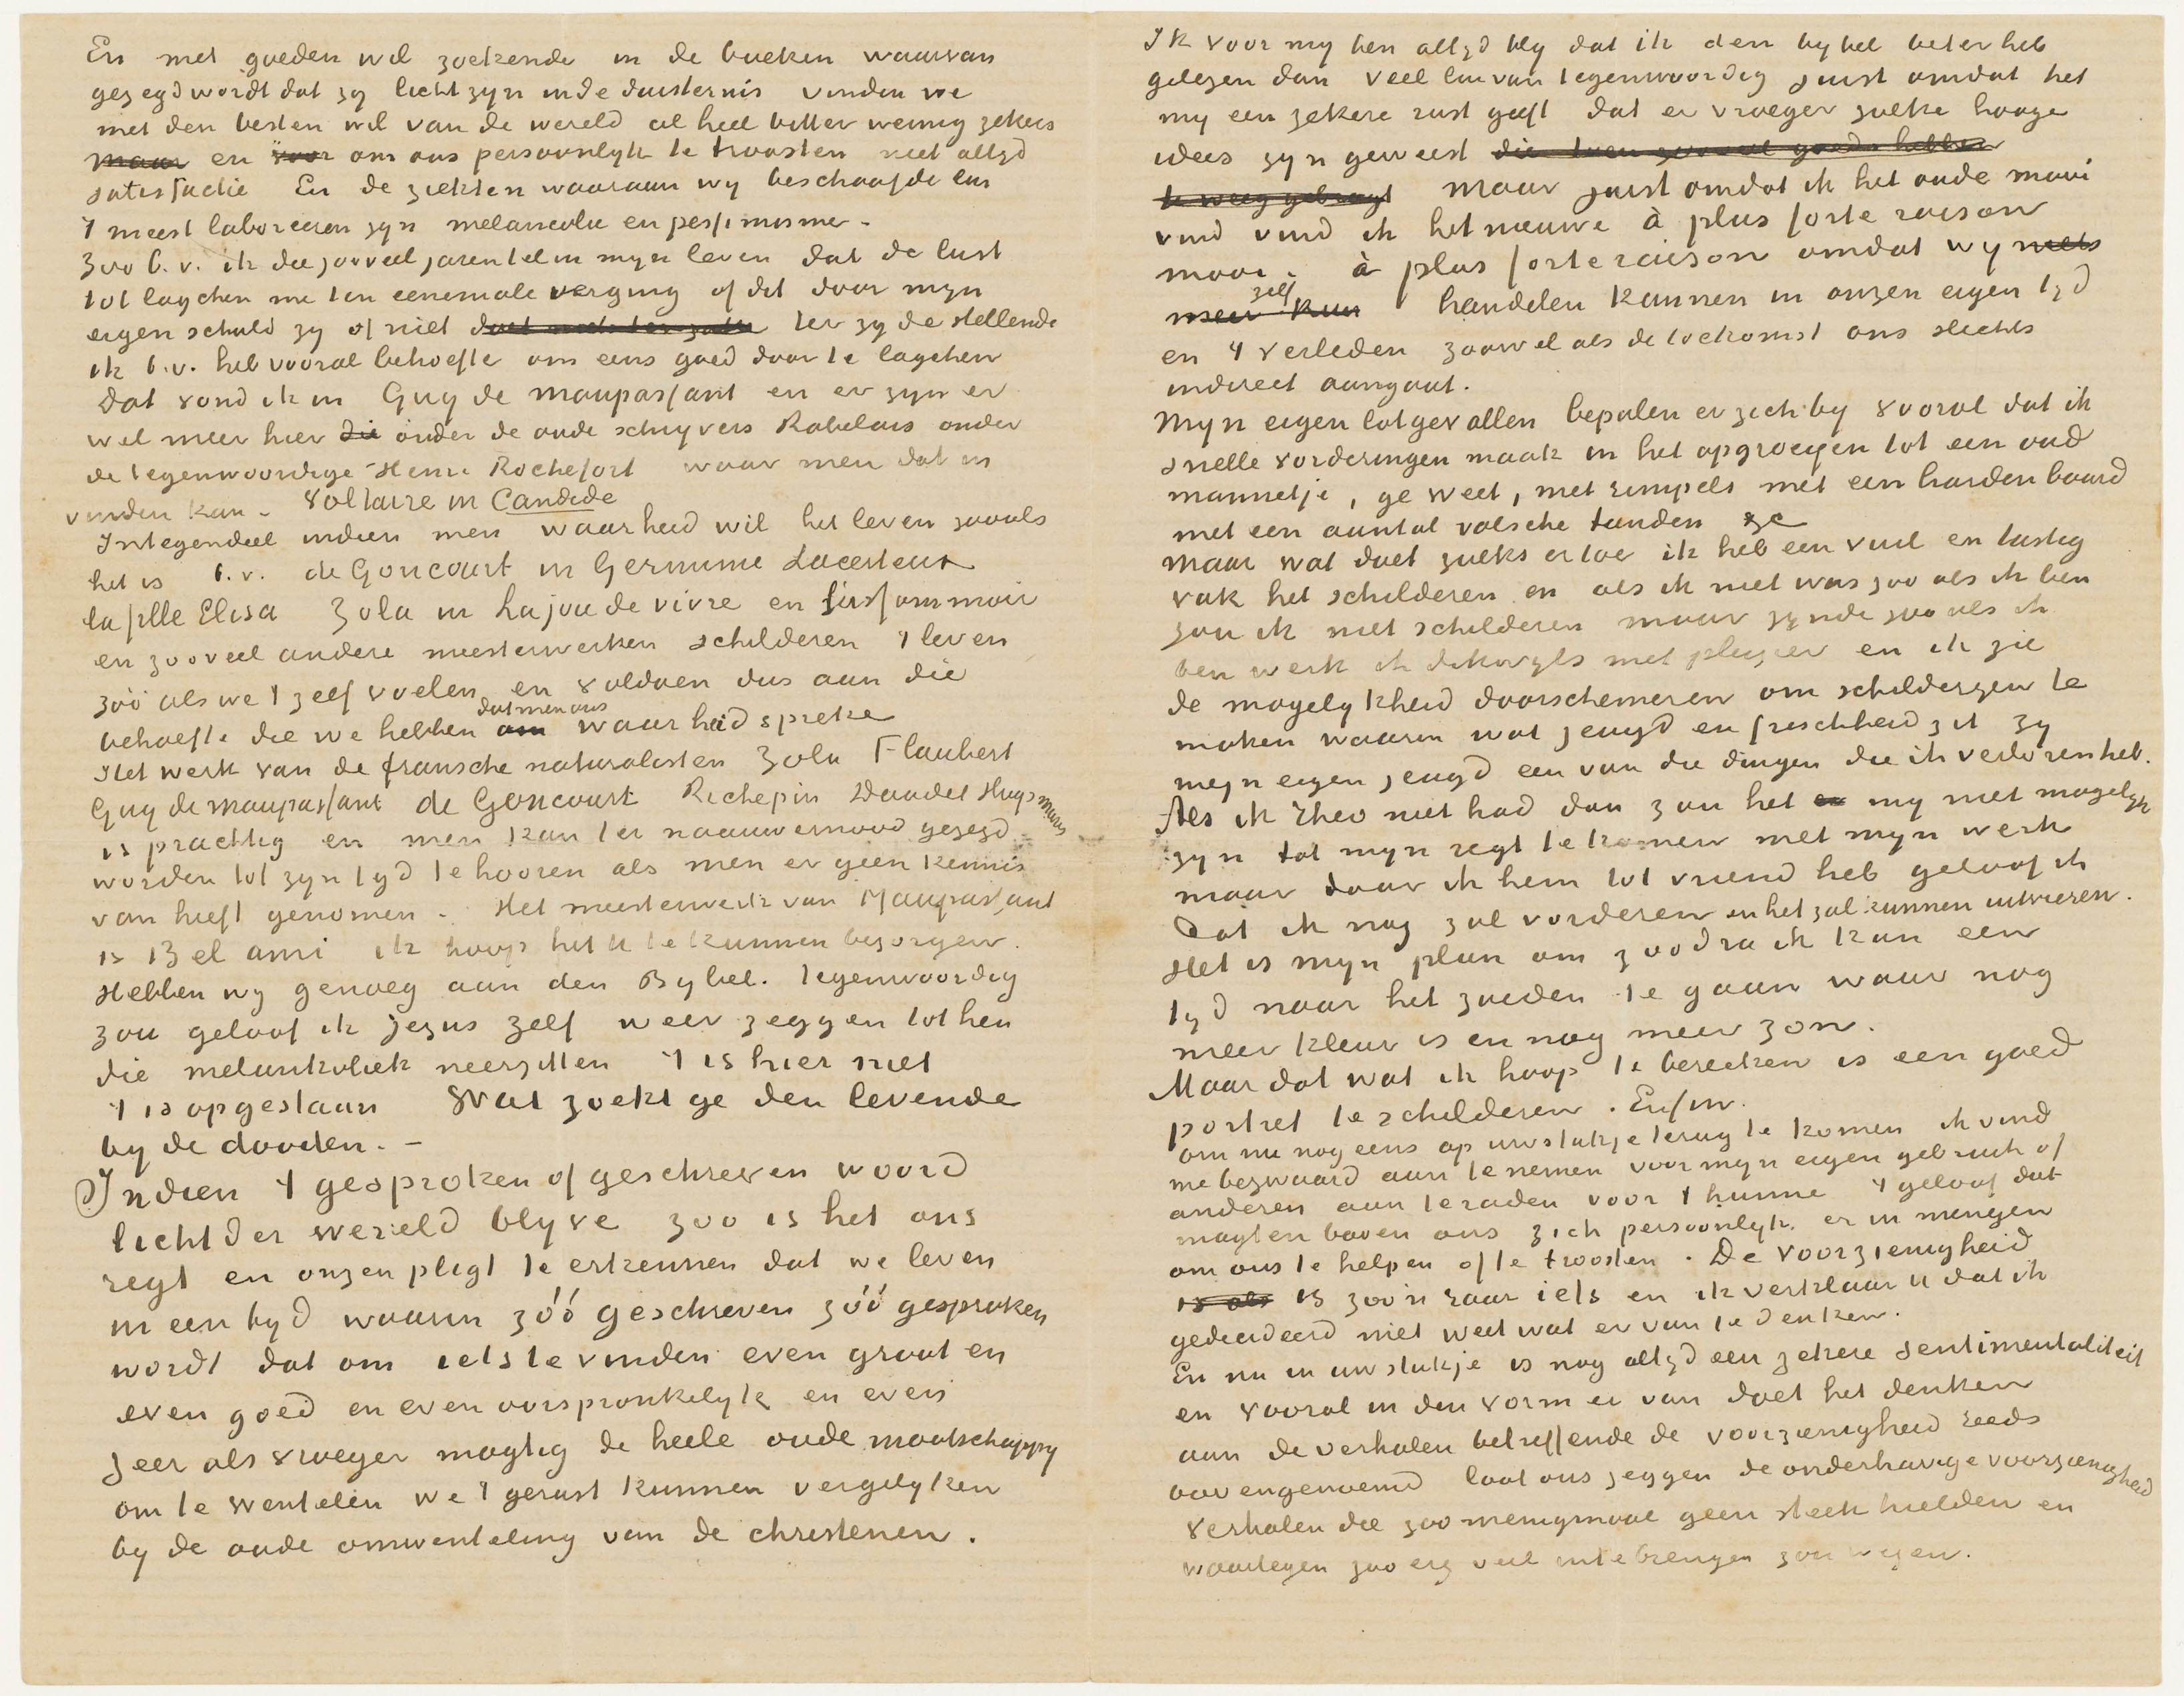 En met goeden wil zoekende in de boeken waarvan
gezegd wordt dat zy licht zyn in de duisternis vinden we
met den besten wil van de wereld al heel bitter weinig zekers
maar en voor om ons persoonlyk te troosten niet altyd
satisfactie En de ziekten waaraan wy beschaafde lui
't meest laboreeren zyn melancolie en pessimisme –
Zoo b.v. ik die zooveel jaren tel in myn leven dat de lust
tot lagchen me ten eenemale verging of dit door myn
eigen schuld zy of niet ter zyde stellende
ik b.v. heb vooral behoefte om eens goed door te lagchen
Dat vond ik in Guy de Maupassant en er zyn er
wel meer hier die onder de oude schryvers Rabelais onder
de tegenwoordige Henri Rochefort waar men dat in
vinden kan – Voltaire in Candide
Integendeel indien men waarheid wil het leven zooals
het is b.v. de Goncourt in Germinie Lacerteux
la fille Elisa Zola in La joie de vivre en L'assommoir
en zooveel andere meesterwerken schilderen 't leven
zóó als we 't zelf voelen en voldoen dus aan die
behoefte die we hebben om dat men ons waarheid spreke
Het werk van de fransche naturalisten Zola Flaubert
Guy de Maupassant de Goncourt Richepin Daudet Huysmans
is prachtig en men kan ter naauwernood gezegd
worden tot zyn tyd te hooren als men er geen kennis
van heeft genomen – Het meesterwerk van Maupassant
is Bel ami ik hoop het U te kunnen bezorgen.
Hebben wy genoeg aan den Bybel. Tegenwoordig
zou geloof ik Jezus zelf weer zeggen tot hen
die melankoliek neerzitten 't is hier niet
't is opgestaan Wat zoekt ge den levende
by de dooden. –
Indien 't gesproken of geschreven woord
licht der wereld blyve zoo is het ons
regt en onzen pligt te erkennen dat we leven
in een tyd waarin zóó geschreven zóó gesproken
wordt dat om iets te vinden even groot en
even goed en even oorspronkelyk en even
zeer als vroeger magtig de heele oude maatschappy
om te wentelen we 't gerust kunnen vergelyken
by de oude omwenteling van de christenen.
Ik voor my ben altyd bly dat ik den bybel beter heb
gelezen dan veel lui van tegenwoordig juist omdat het
my een zekere rust geeft dat er vroeger zulke hooge
idees zyn geweest die toen zooveel goeds hebben
te weeg gebragt maar juist omdat ik het oude mooi
vind vind ik het nieuwe à plus forte raison
mooi. à plus forte raison omdat wy niets
meer kun zelf handelen kunnen in onzen eigen tyd
en 't verleden zoowel als de toekomst ons slechts
indirect aangaat.
Myn eigen lotgevallen bepalen er zich by vooral dat ik
snelle vorderingen maak in het opgroeijen tot een oud
mannetje, ge weet, met rimpels met een harden baard
met een aantal valsche tanden &c
Maar wat doet zulks er toe ik heb een vuil en lastig
vak het schilderen en als ik niet was zoo als ik ben
zou ik niet schilderen maar zynde zooals ik
ben werk ik dikwyls met plezier en ik zie
de mogelykheid doorschemeren om schilderyen te
maken waarin wat jeugd en frischheid zit zy
myn eigen jeugd een van die dingen die ik verloren heb.
Als ik Theo niet had dan zou het my niet mogelyk
zyn tot myn regt te komen met myn werk
maar daar ik hem tot vriend heb geloof ik
dat ik nog zal vorderen en het zal kunnen uitvieren.
Het is myn plan om zoodra ik kan een
tyd naar het zuiden te gaan waar nog
meer kleur is en nog meer zon.
Maar dat wat ik hoop te bereiken is een goed
portret te schilderen. Enfin.
om nu nog eens op uw stukje terug te komen ik vind
me bezwaard aan te nemen voor myn eigen gebruik of
anderen aan te raden voor 't hunne 't geloof dat
magten boven ons zich persoonlyk er in mengen
om ons te helpen of te troosten. De Voorzienigheid
is als is zoo'n raar iets en ik verklaar U dat ik
gedecideerd niet weet wat er van te denken.
En nu in uw stukje is nog altyd een zekere sentimentaliteit
en vooral in den vorm er van doet het denken
aan de verhalen betreffende de voorzienigheid reeds
bovengenoemd laat ons zeggen de onderhavige voorzienigheid
Verhalen die zoo menigmaal geen steek hielden en
waartegen zoo erg veel in te brengen zou wezen.